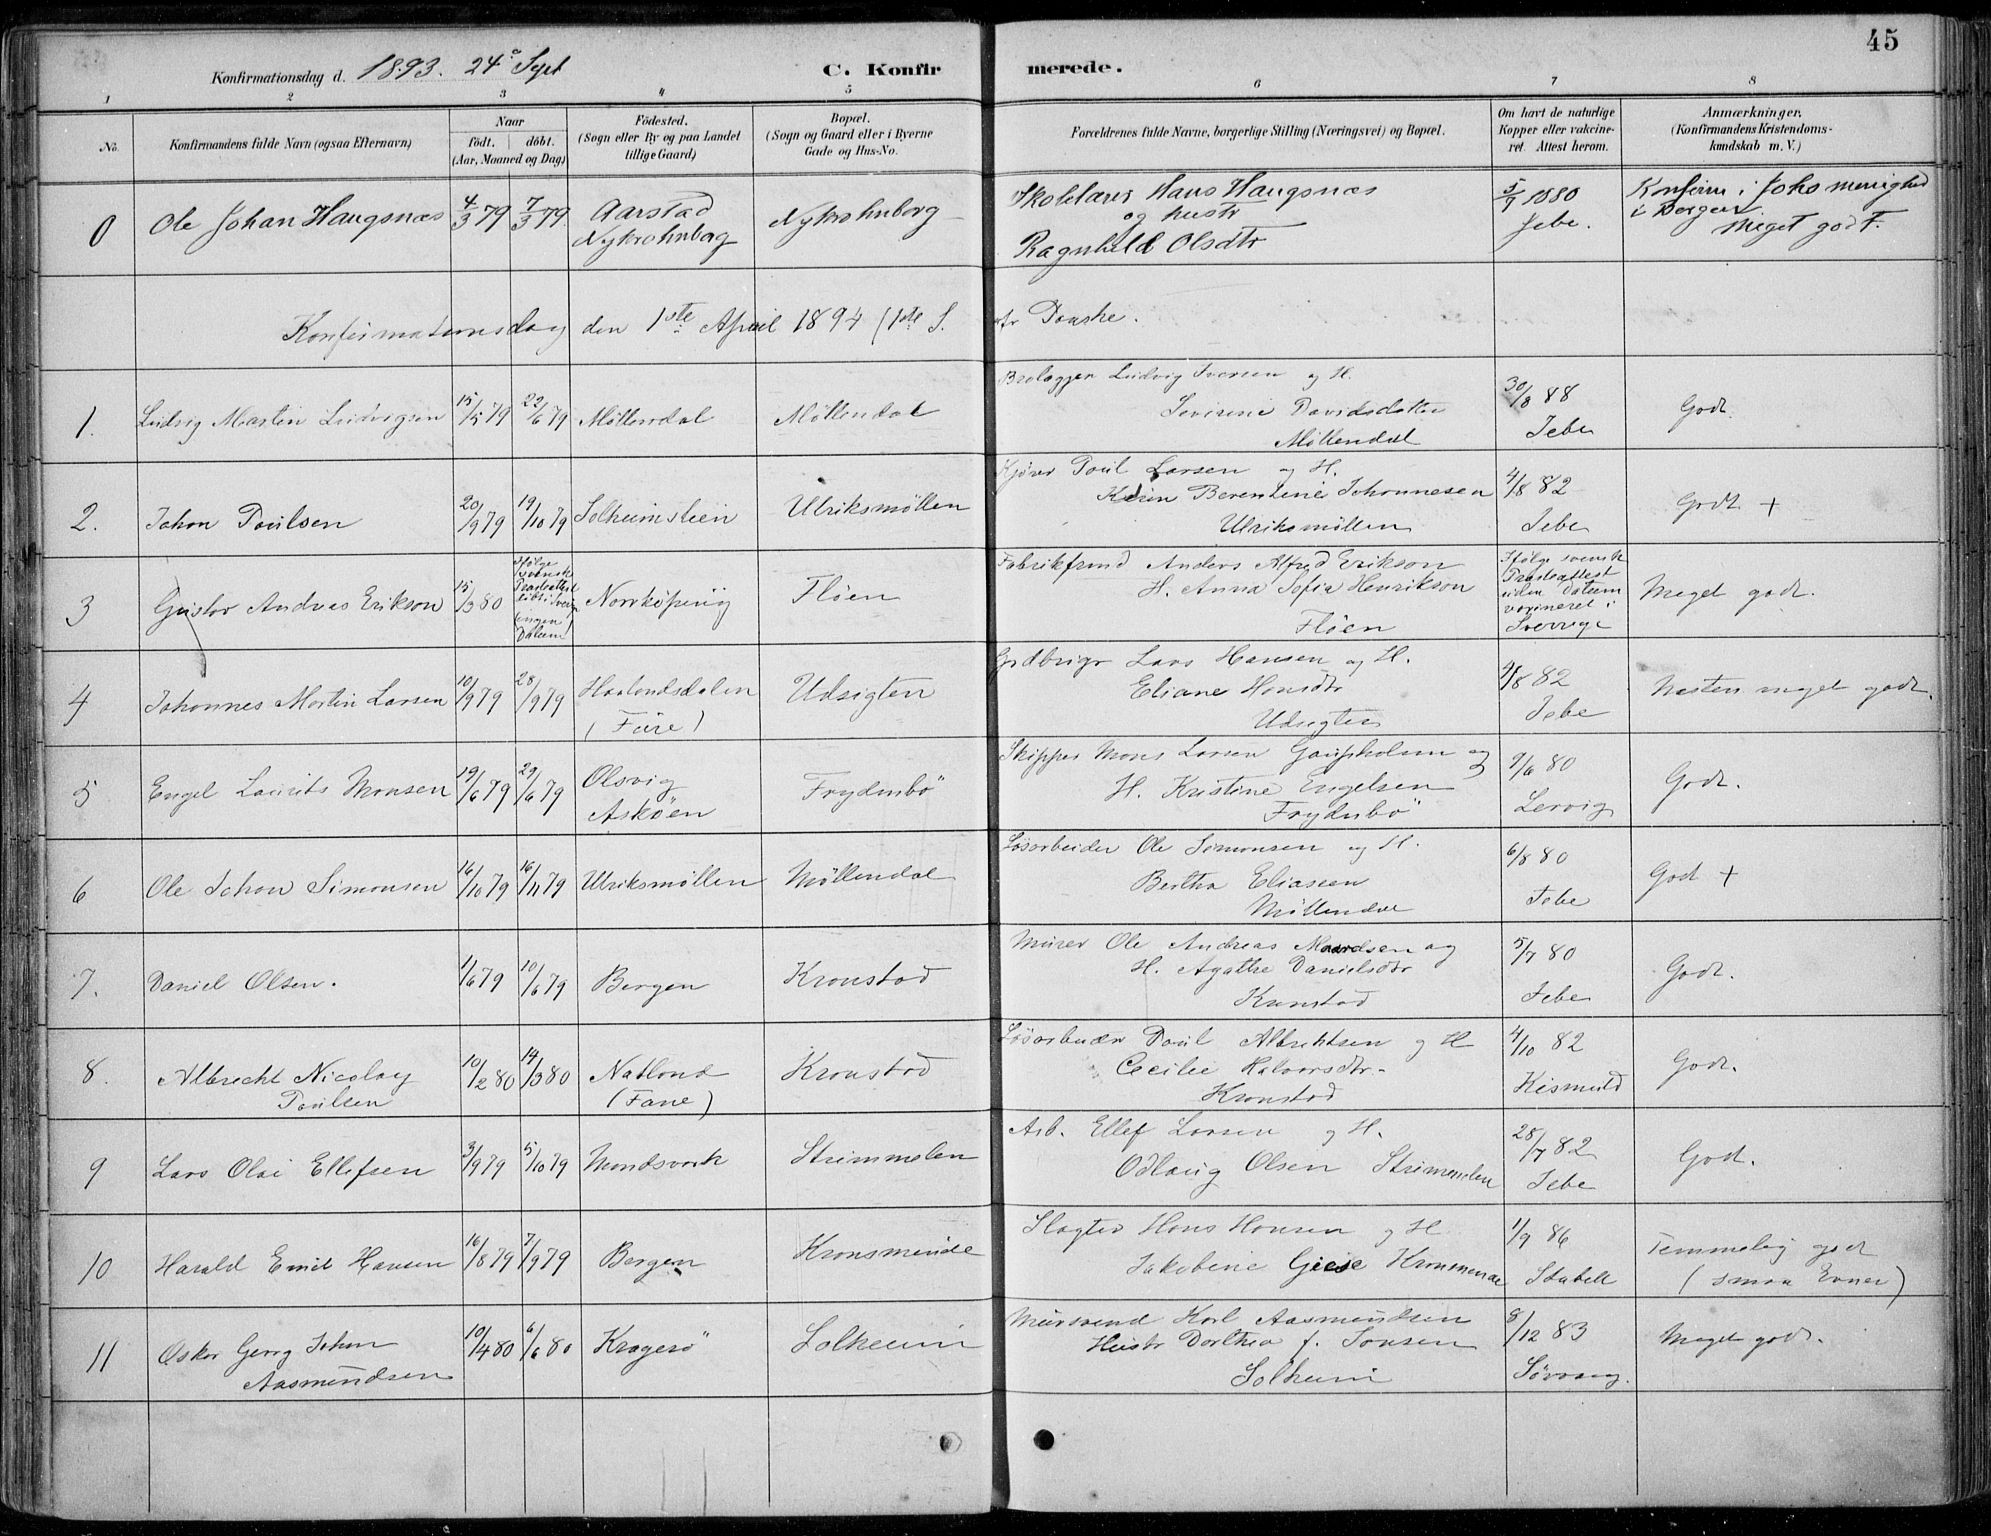 45
Konfirmationsdag d. 1893. 24de Sept C. Konfirmerede.
1 2 3 4 5 6 7 8
No. Konfirmandens fulde Navn (ogsaa Efternavn) Naar født. døbt. (Aar, Maaned og Dag) Fødested. (Sogn eller By og paa Landet tillige Gaard) Bopæl. (Sogn og Gaard eller i Byerne Gade og Hus-No. Forældrenes fulde Navne, borgerlige Stilling (Næringsvei) og Bopæl. Om havt de naturlige Kopper eller vakcineret. Attest herom. Anmærkninger. (Konfirmandens Kristendomskundskab m. V.)
0 Ole Johan Haugsnæs 4/3 79 7/3 79. Aarstad Nykrohnborg Nykrohnborg Skolelærer Hans Haugsnæs og hustr Ragnhild Olsdtr 5/9 1880 Jebe. Konfirm i Johs menighed i Bergen Meget godt.
Konfirmationsdag den 1ste April 1894 (1ste S. etr Paaske.
1. Ludvig Martin Ludvigsen 15/5 79 22/6 79 Møllendal Møllendal Brolægger Ludvig Iversen og H. Severine Davidsdatter Møllendal 30/8 88 Jebe Godt.
2. Johan Poulsen 20/9 79 19/10 79 Solheimslien Ulriksmøllen Kjører Poul Larsen og H. Karin Berentine Johannesen Ulriksmøllen 4/8 82 Jebe Godt +
3 Gustav Andreas Erikson 15/3 80 Ifølge svensk Præsteattest døbt i Sverige (ingen Datum) Norrköping Fløen Fabrikfrmd Anders Alfred Erikson H. Anna Sofia Henrikson Fløen Ifølge svensk Præsteattest uden Datum vaccineret i Sverrige Meget godt.
4 Johannes Martin Larsen 10/9 79 28/9 79 Haalandsdalen (Fuse) Udsigten Grdbrugr Lars Hansen og H. Eliane Hansdtr Udsigten 9/8 82 Jebe Næsten meget godt.
5 Engel Laurits Monsen 19/6 79 29/6 79 Olsvig Askøen Frydenbö Skipper Mons Larsen Gaupholm og H. Kristine Engelsen Frydenbö 9/6 80 Lervig Godt.
6 Ole Johan Simonsen 16/10 79 16/11 79 Ulriksmøllen Møllendal Løsarbeider Ole Simonsen og H. Bertha Eliassen Møllendal 6/8 80 Jebe Godt +
7. Daniel Olsen. 1/6 79 10/6 79 Bergen Kronstad Murer Ole Andreas Monsen og H. Agathe Danielsdtr Kronstad 5/7 80 Jebe Godt.
8. Albrecht Nicolay Poulsen 10/2 80 14/3 80 Natland (Fane) Kronstad Løsarbeider Poul Albrektsen og H Cecilie Halvorsdtr. Kronstad 4/10 82 Kismuld Godt.
9 Lars Olai Ellefsen 3/9 79 5/10 79 Mundsvik Strimmelen Arb. Ellef Larsen og H. Odlaug Olsen Strimmelen 28/7 82 Jebe Godt.
10 Harald Emil Hansen 16/8 79 7/9 79 Bergen Kronsminde Slagter Hans Hansen og H Jakobine Giese Kronsminde 1/9 86 Stabell Temmelig godt (smaa Evner)
11 Oskar Georg Johan Aasmundsen 10/4 80 6/6 80 Kragerö Solheim Mursvend Karl Aasmundsen Hustr Dorthea f. Jonsen Solheim 8/12 83 Sørvang. Meget godt.